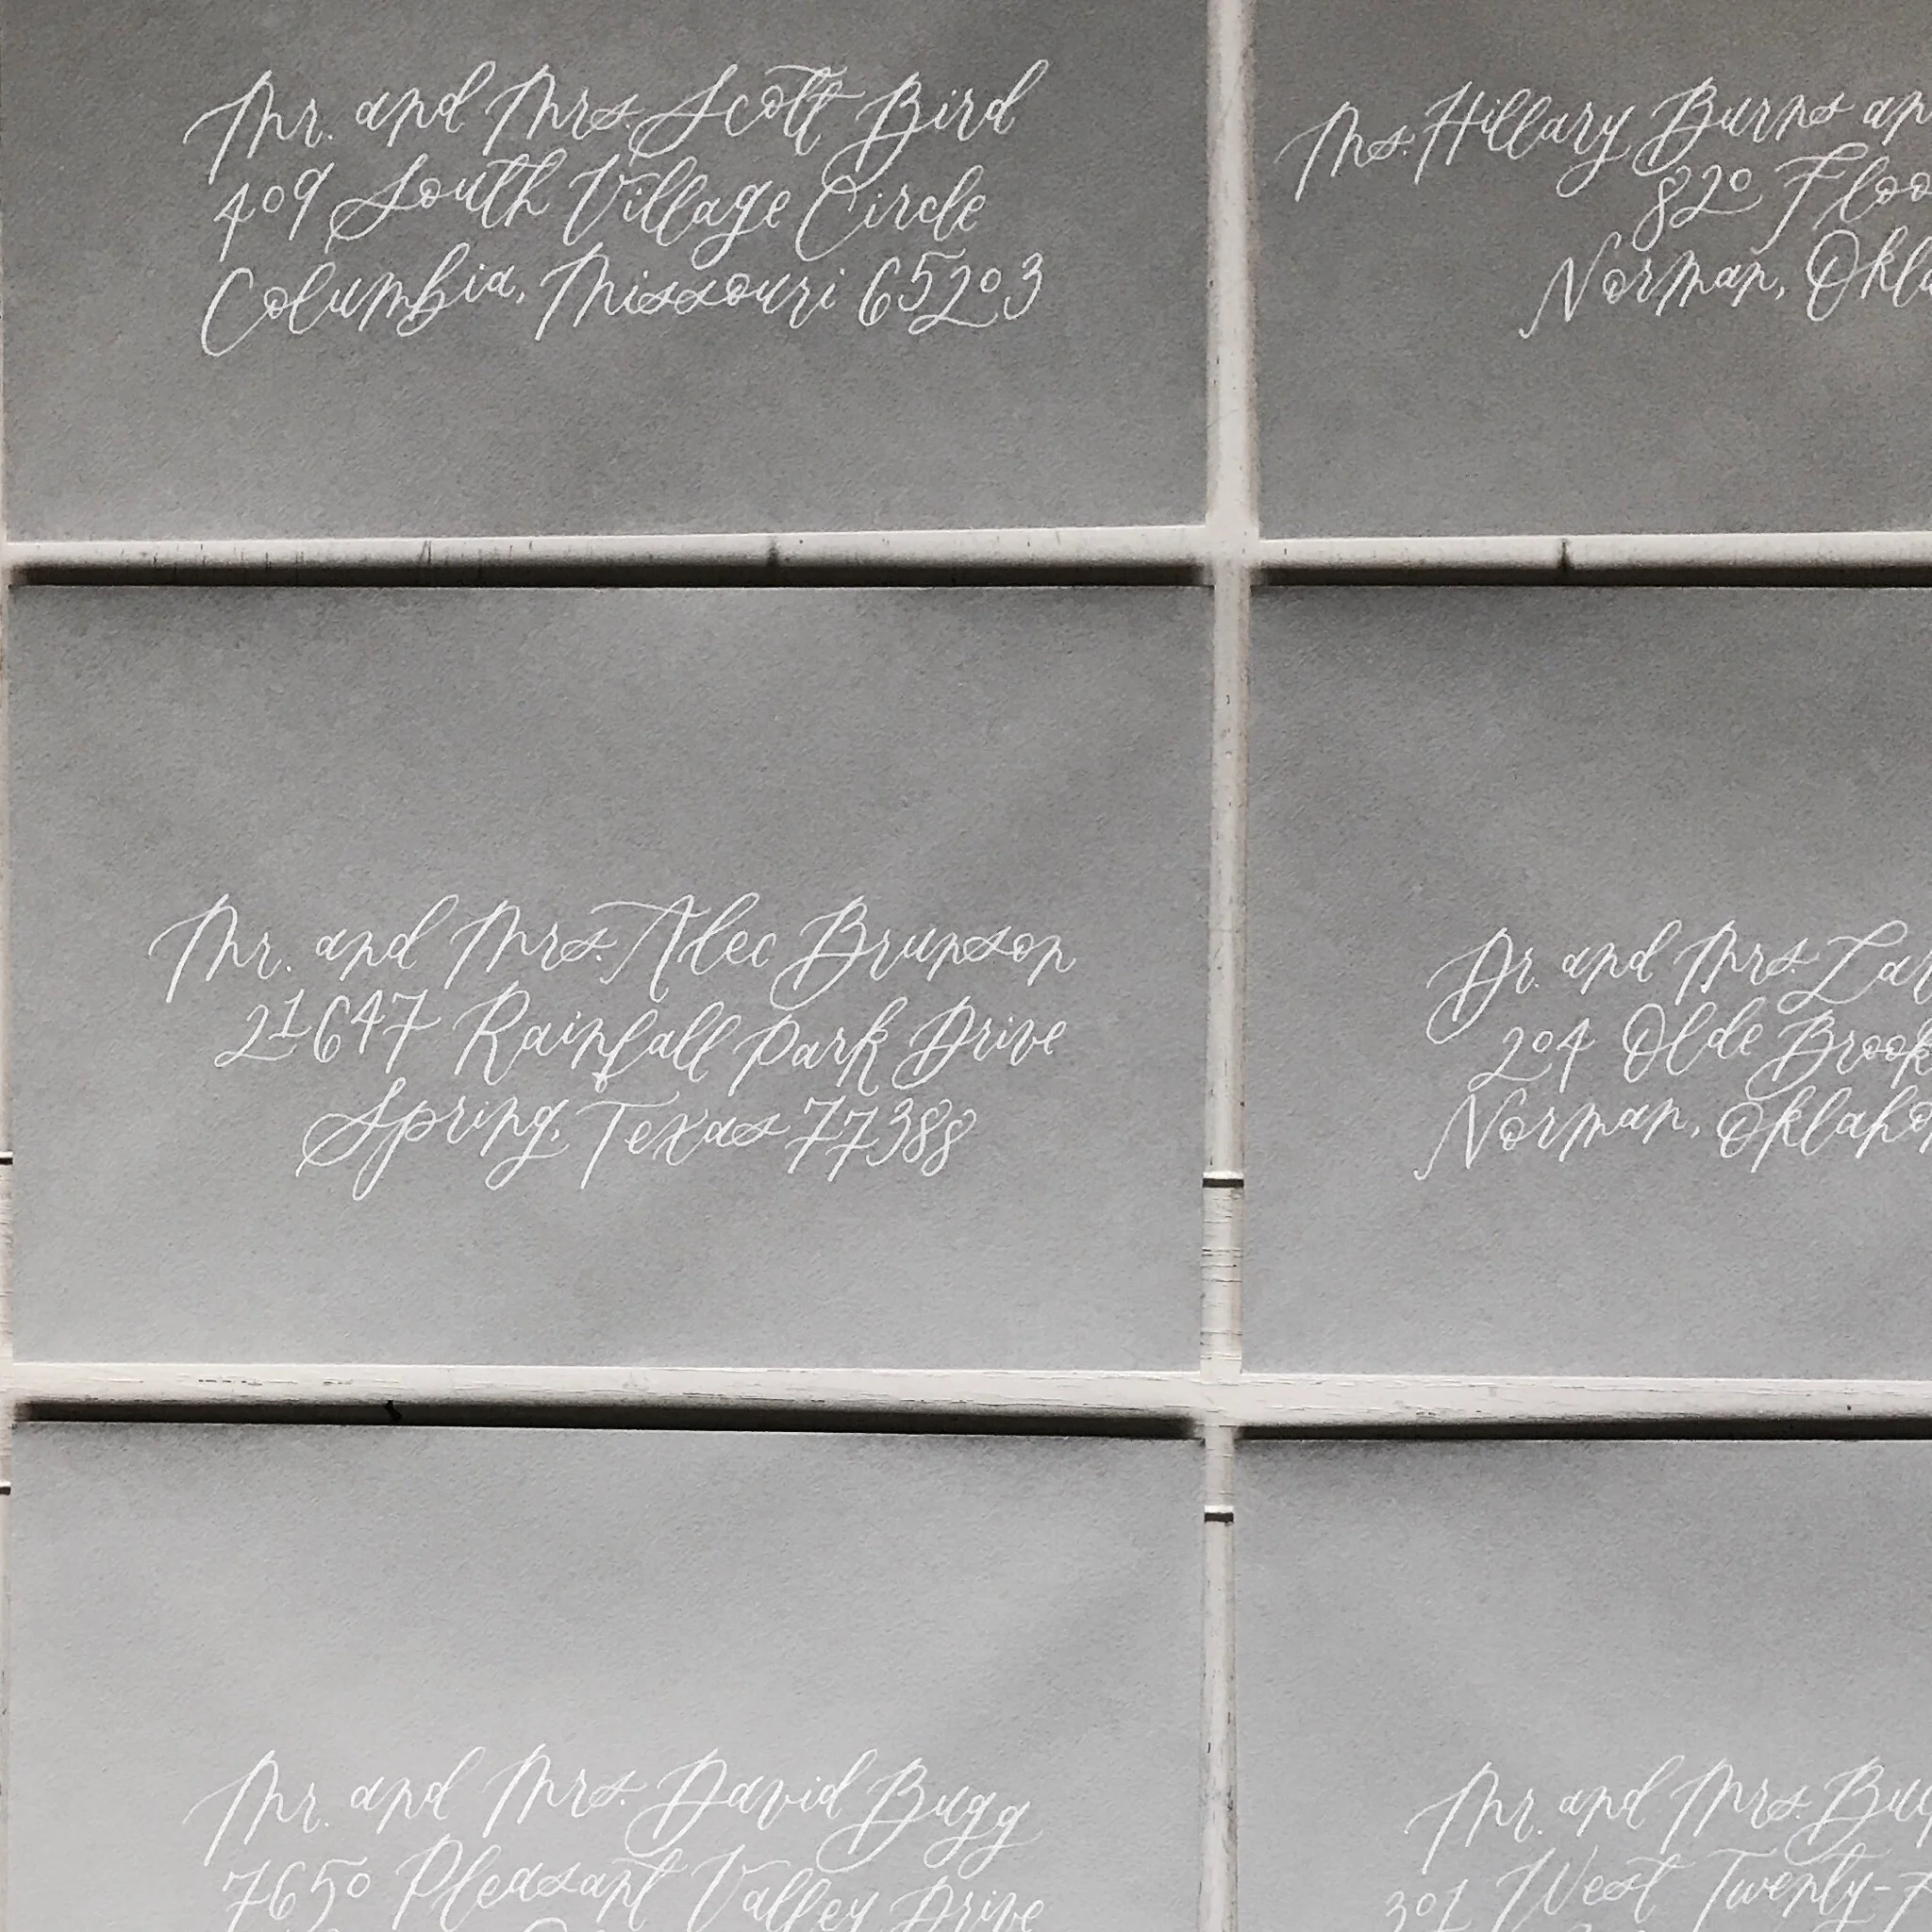 Mr. and Mrs. Scott Bird
409 South Village Circle
Columbia, Missouri 65203
Ms. Hillary Burns an
820 Floo
Norman, Okla
Mr. and Mrs. Alec Brunson
21647 Rainfall Park Drive
Spring, Texas 77388
Dr. and Mrs. Lar
204 Olde Brook
Norman, Oklaho
Mr. and Mrs. David Bugg
7650 Pleasant Valley Drive
Mr. and Mrs. Bu
301 West Twenty-